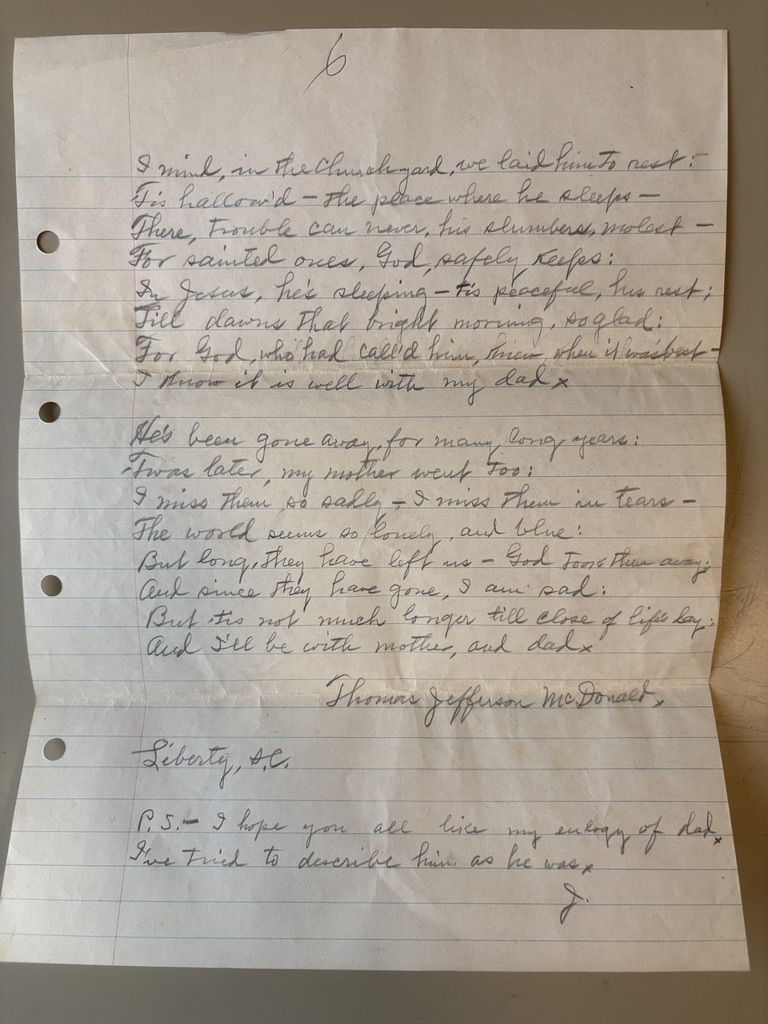 6
I mind, in the Churchyard, we laid him to rest:-
Tis hallow'd - the place where he sleeps -
There, trouble can never, his slumbers, molest -
For sainted ones, God, safely keeps:
In Jesus, he's sleeping - tis peaceful, his rest;
Till dawns that bright morning, so glad:
For God, who had call'd him, knew, when it was best -
I know it is well with my dad x
He's been gone away, for many, long years:
'Twas later, my mother went too:
I miss them so sadly - I miss them in tears -
The world seems so lonely, and blue:
But long, they have left us - God took them away;
And since they have gone, I am sad:
But tis not much longer till close of life's day:
And I'll be with mother, and dad x
Thomas Jefferson McDonald x
Liberty, S.C.
P.S. - I hope you all like my eulogy of dad x
I've tried to describe him as he was x
J.